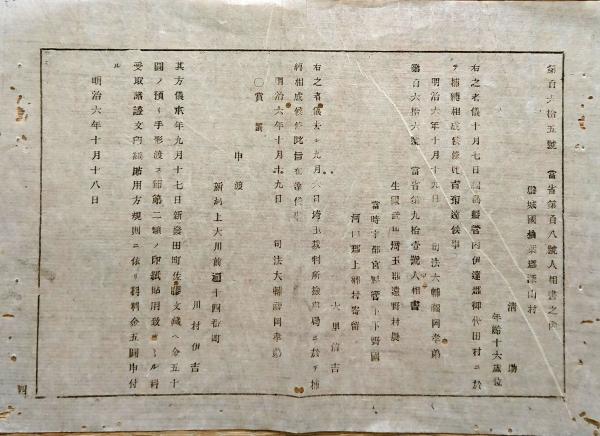 第百六拾五號　當省第百八號人相書之內
磐城國 郡 山村
清助
年齡十六歲位
右之者儀十月七日 縣管內伊達郡御代田村ニ於
テ捕縛相成候條此旨布達候事
明治六年十月十九日　司法大輔福岡孝弟
第百六拾六號　當省第九拾壹號人相書
生國武州埼玉郡 野村農
當時宇都宮縣管下下野國
河內郡上 村寄留
大里信吉
右之者儀去ル九月六日埼玉裁判所 ニ於テ捕
縛相成候條此旨布達候事
明治六年十月十九日　司法大輔福岡孝弟
〇賞罰
申渡
新潟上大川前通十四番町
川村伊吉
其方儀本年九月十七日新發田町佐藤文藏ヘ金五十
圓ノ預リ手形渡ス節第二類ノ印紙貼用致 ル科
受取諸證文印紙貼用方規則ニ依リ科料金五圓申付
ル
明治六年十月十八日
四